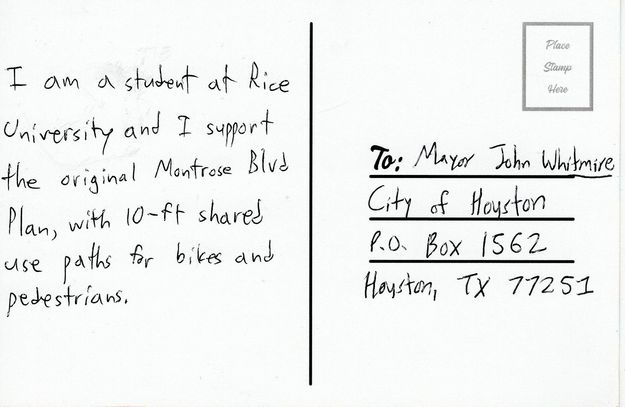 I am a student at Rice
University and I support
the original Montrose Blvd
Plan, with 10-ft shared
use paths for bikes and
pedestrians.
Place
Stamp
Here
To: Mayor John Whitmire
City of Houston
P.O. Box 1562
Houston, TX 77251